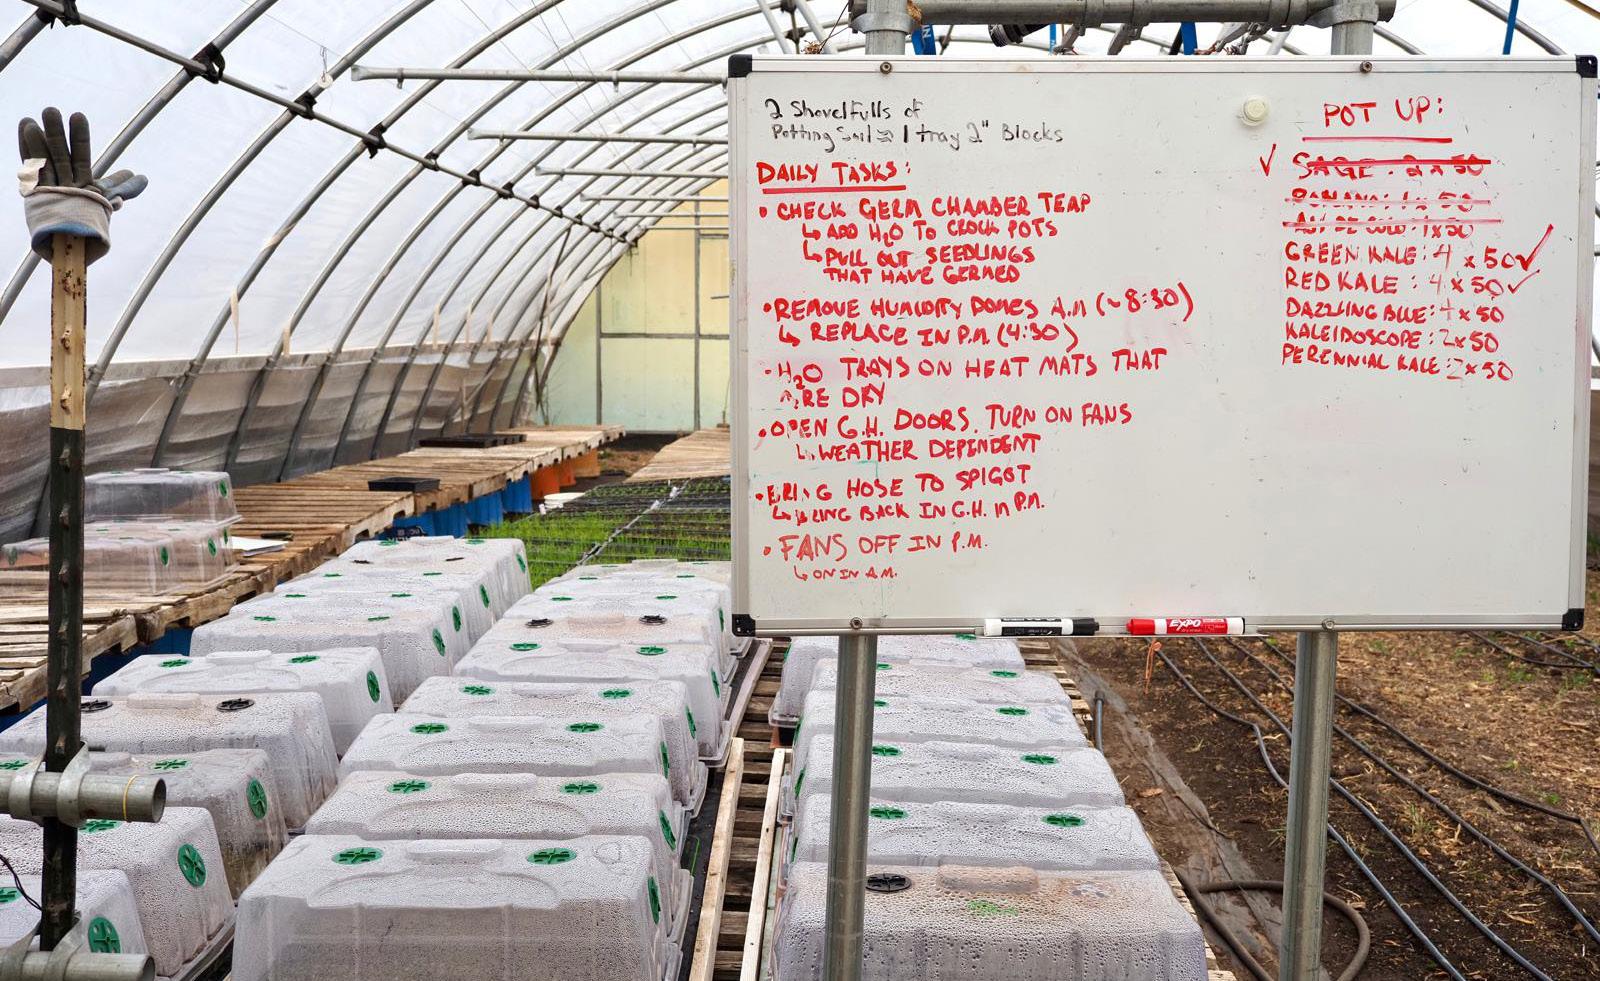 2 Shovelfulls of
Potting Soil ≈ 1 tray 2" Blocks
DAILY TASKS:
• CHECK GERM CHAMBER TEMP
↳ ADD H2O TO CROCK POTS
↳ PULL OUT SEEDLINGS
THAT HAVE GERMED
• REMOVE HUMIDITY DOMES A.M (~8:30)
↳ REPLACE IN P.M. (4:30)
• H2O TRAYS ON HEAT MATS THAT
ARE DRY
• OPEN G.H. DOORS, TURN ON FANS
↳ WEATHER DEPENDENT
• BRING HOSE TO SPIGOT
↳ BRING BACK IN G.H. in P.M.
• FANS OFF IN P.M.
↳ ON IN A.M.
POT UP:
✓ SAGE: 2 x 50
1 x 50
1x50
GREEN KALE: 4 x 50 ✓
RED KALE: 4 x 50 ✓
DAZZLING BLUE: 4 x 50
KALEIDOSCOPE: 2x50
PERENNIAL KALE: 2x50
EXPO